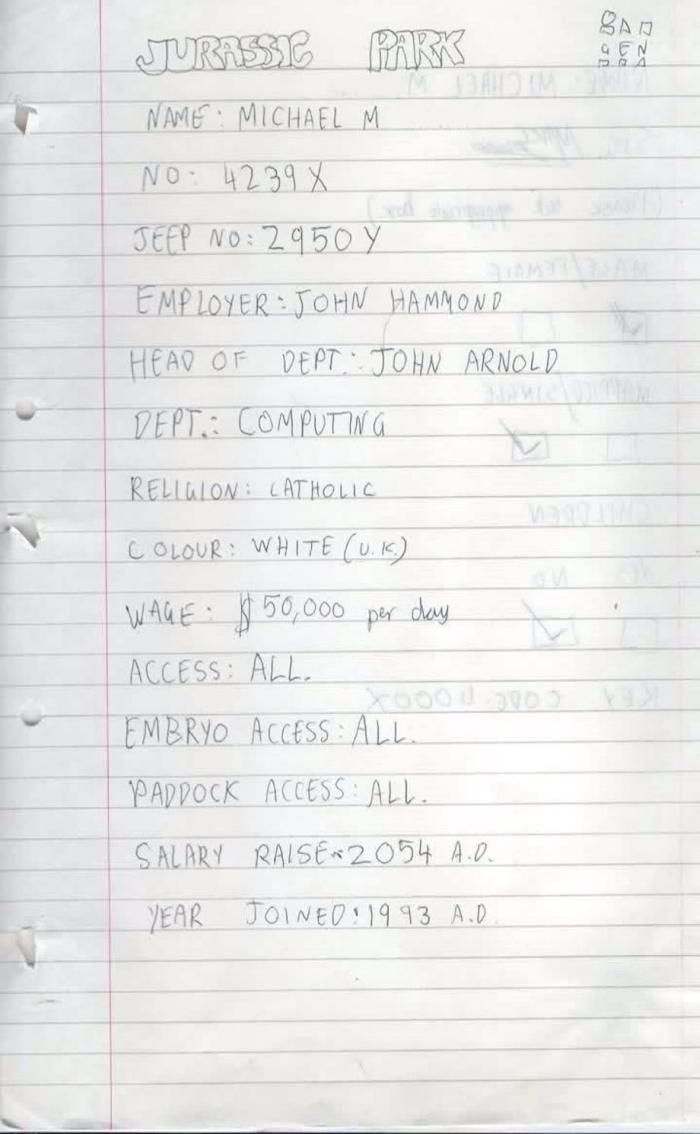 JURASSIC PARK
NAME: MICHAEL M
NO: 4239X
JEEP NO: 2950Y
EMPLOYER: JOHN HAMMOND
HEAD OF DEPT.: JOHN ARNOLD
DEPT.: COMPUTING
RELIGION: CATHOLIC
COLOUR: WHITE (U.K.)
WAGE: $50,000 per day
ACCESS: ALL.
EMBRYO ACCESS: ALL.
PADDOCK ACCESS: ALL.
SALARY RAISE: 2054 A.D.
YEAR JOINED: 1993 A.D.